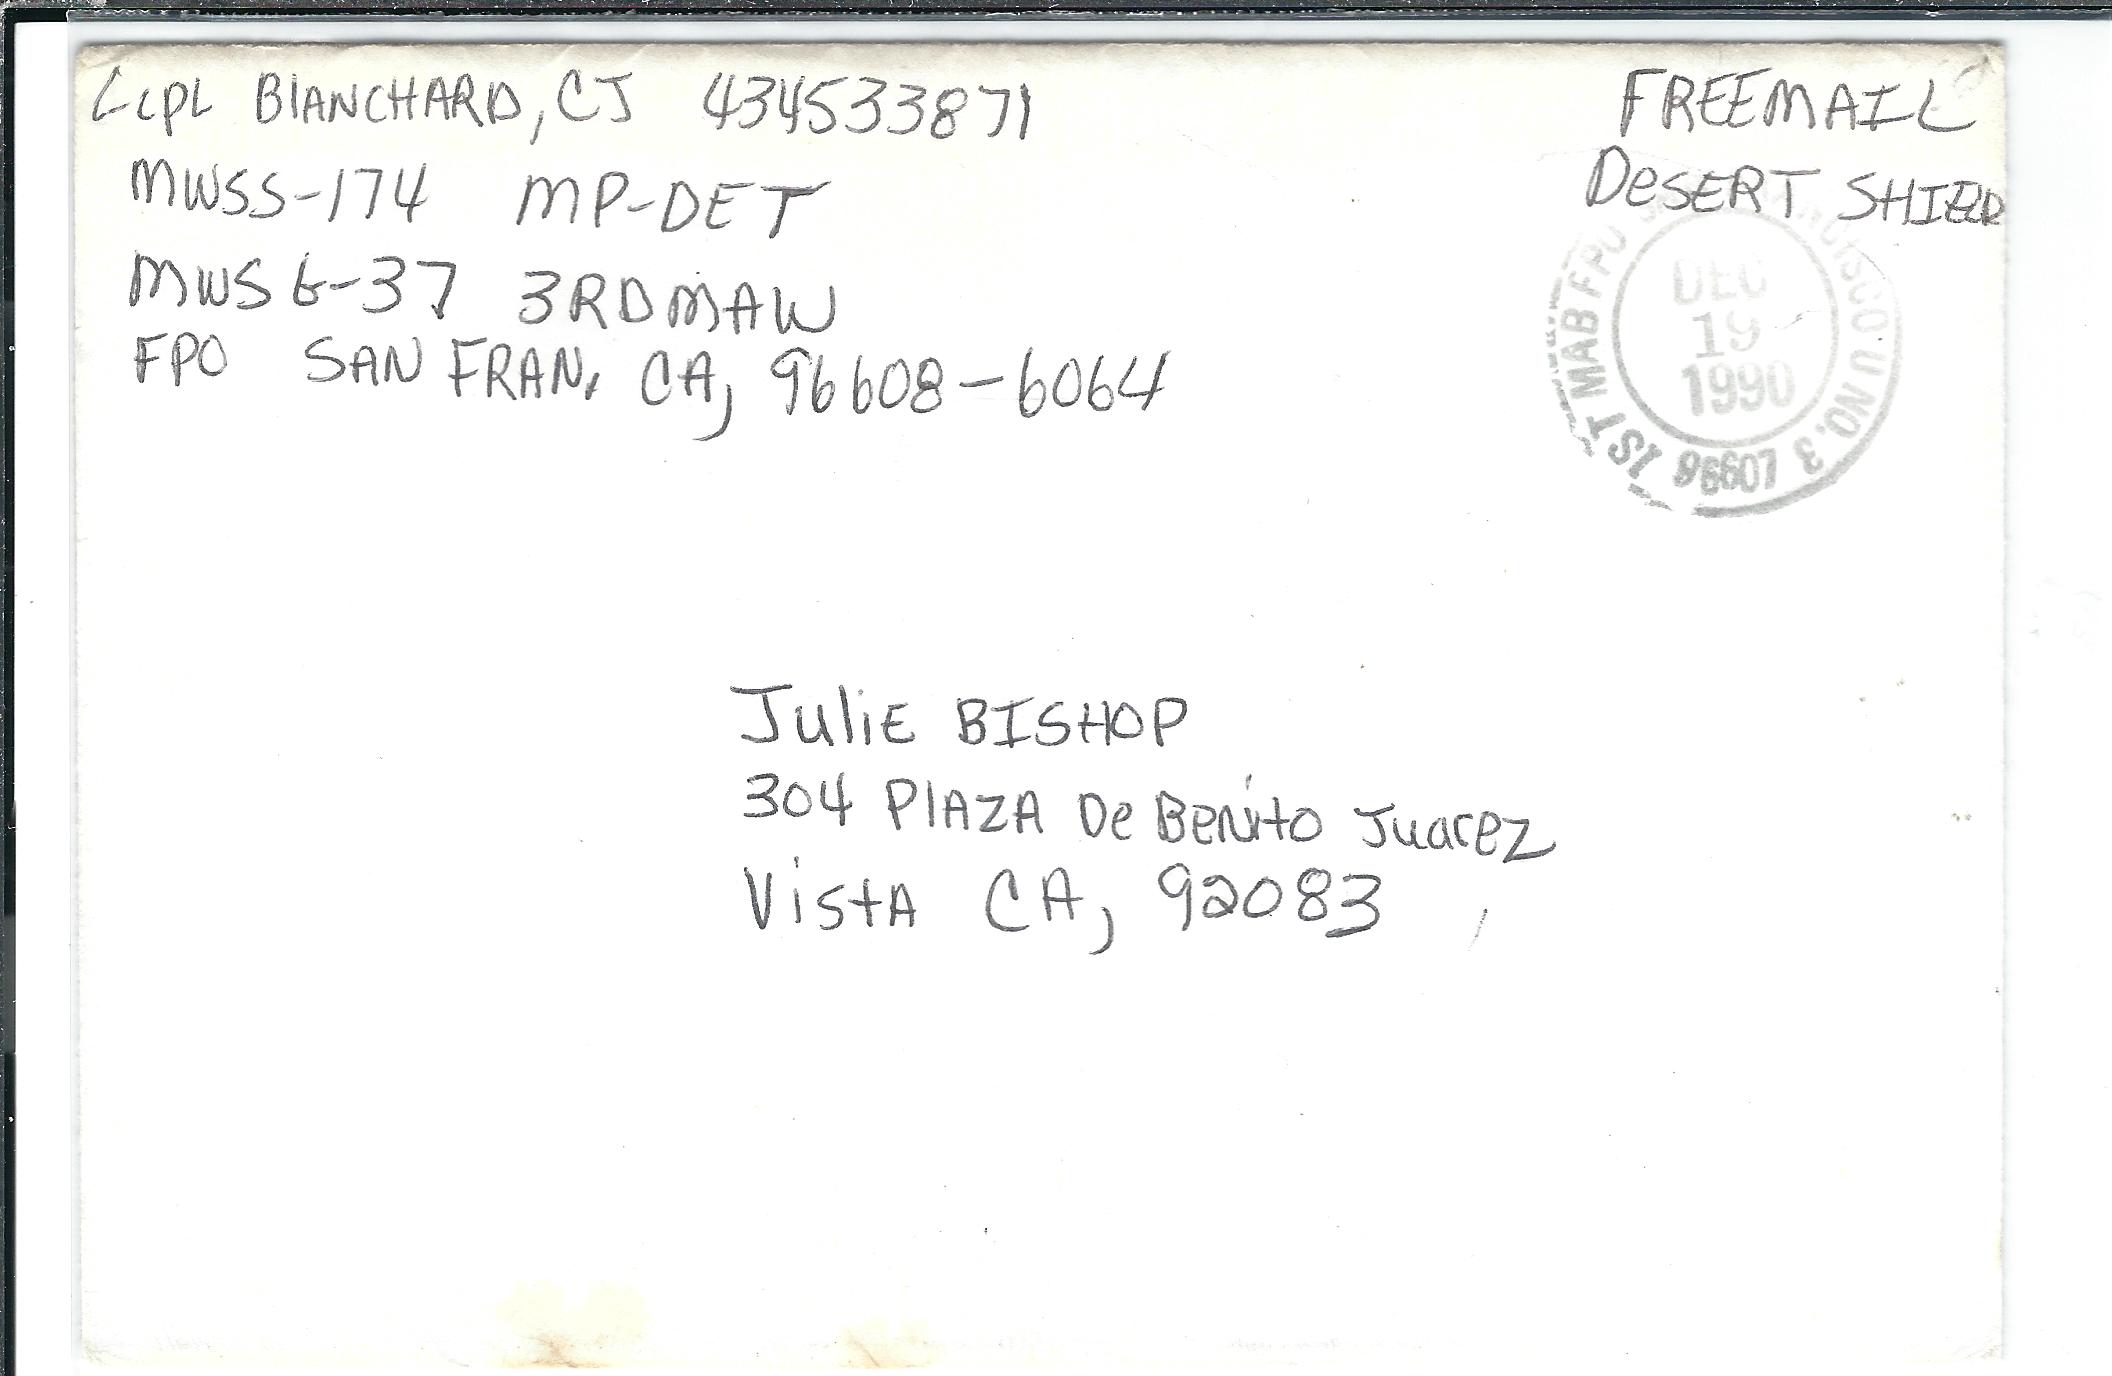 LCPL BlANCHARD, CJ 434533871
MWSS-174 MP-DET
MWSG-37 3RDMAW
FPO SAN FRAN, CA, 96608-6064
FREEMAIL
DeSERT SHIELD
1ST MAB FPO SAN FRANCISCO U NO. 3 96607
DEC
19
1990
JuliE BISHOP
304 PlAZA De BeNito Juarez
VistA CA, 92083